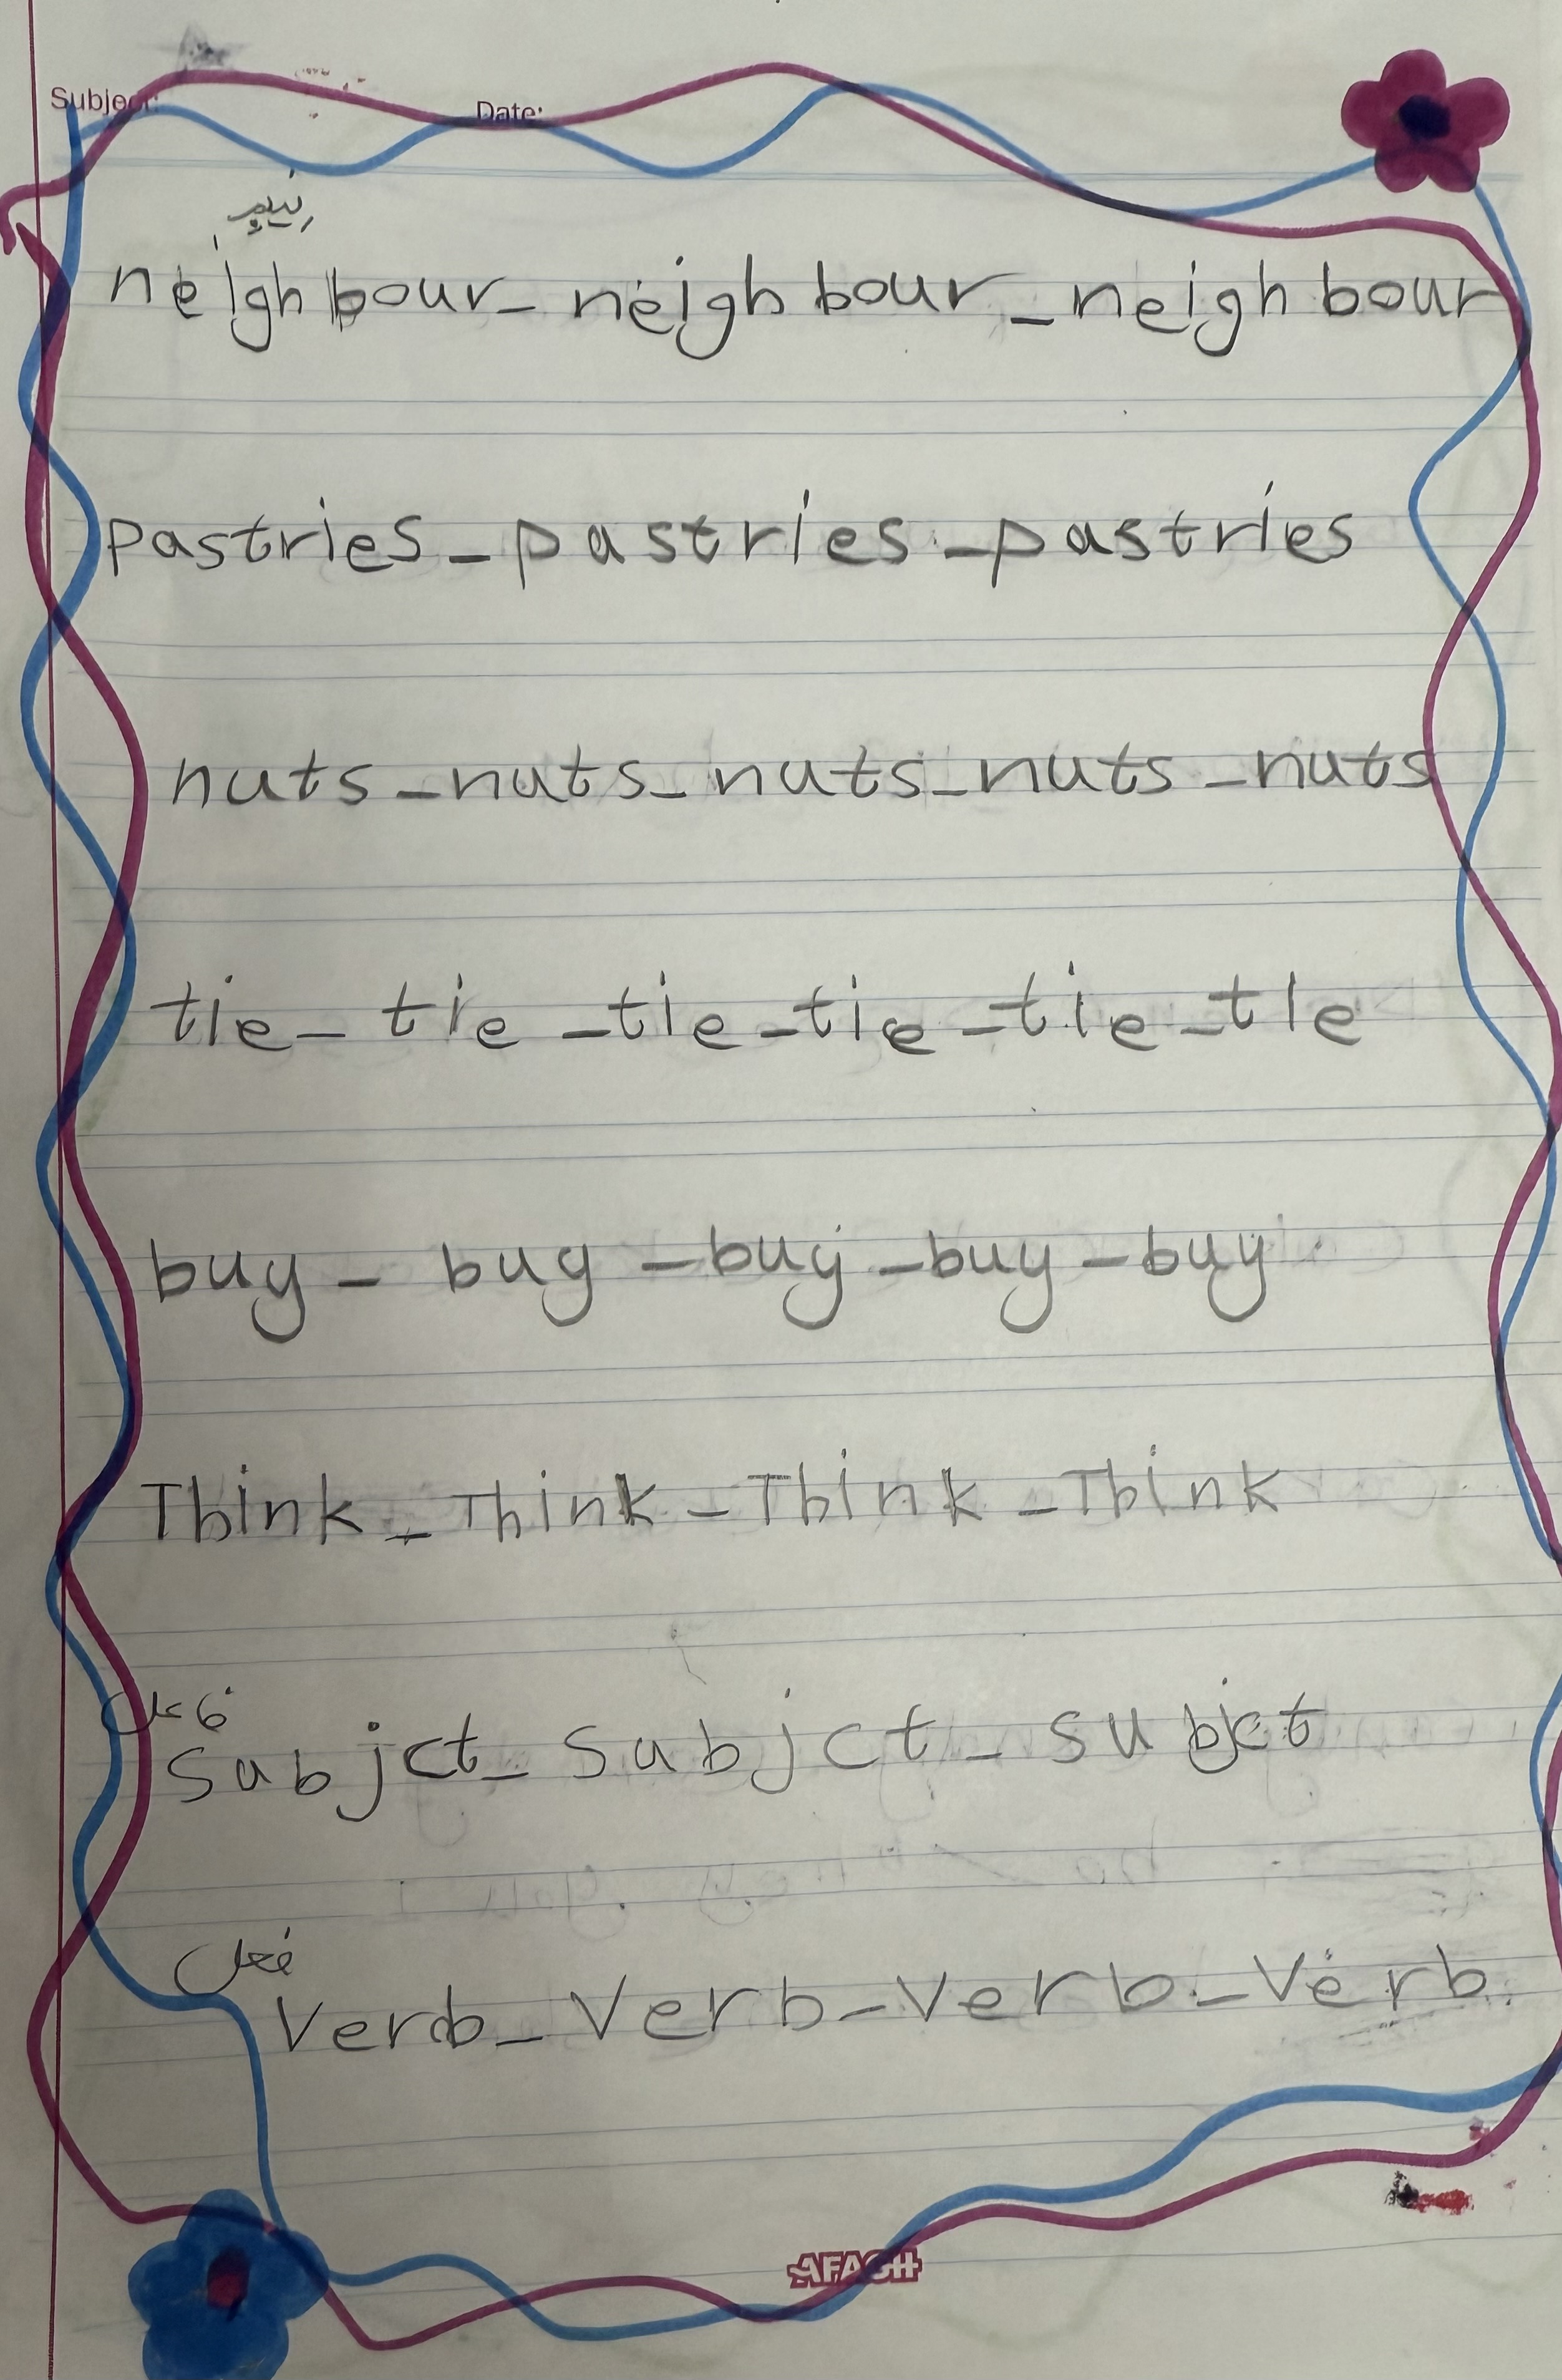 Subject: Date:
neighbour - neighbour - neighbour
Pastries - pastries - pastries
nuts - nuts - nuts - nuts - nuts
tie - tie - tie - tie - tie - tie
buy - buy - buy - buy - buy
Think - Think - Think - Think
فاعل
Subjct - Subjct - subjct
فعل
Verb - Verb - Verb - Verb
AFAGH